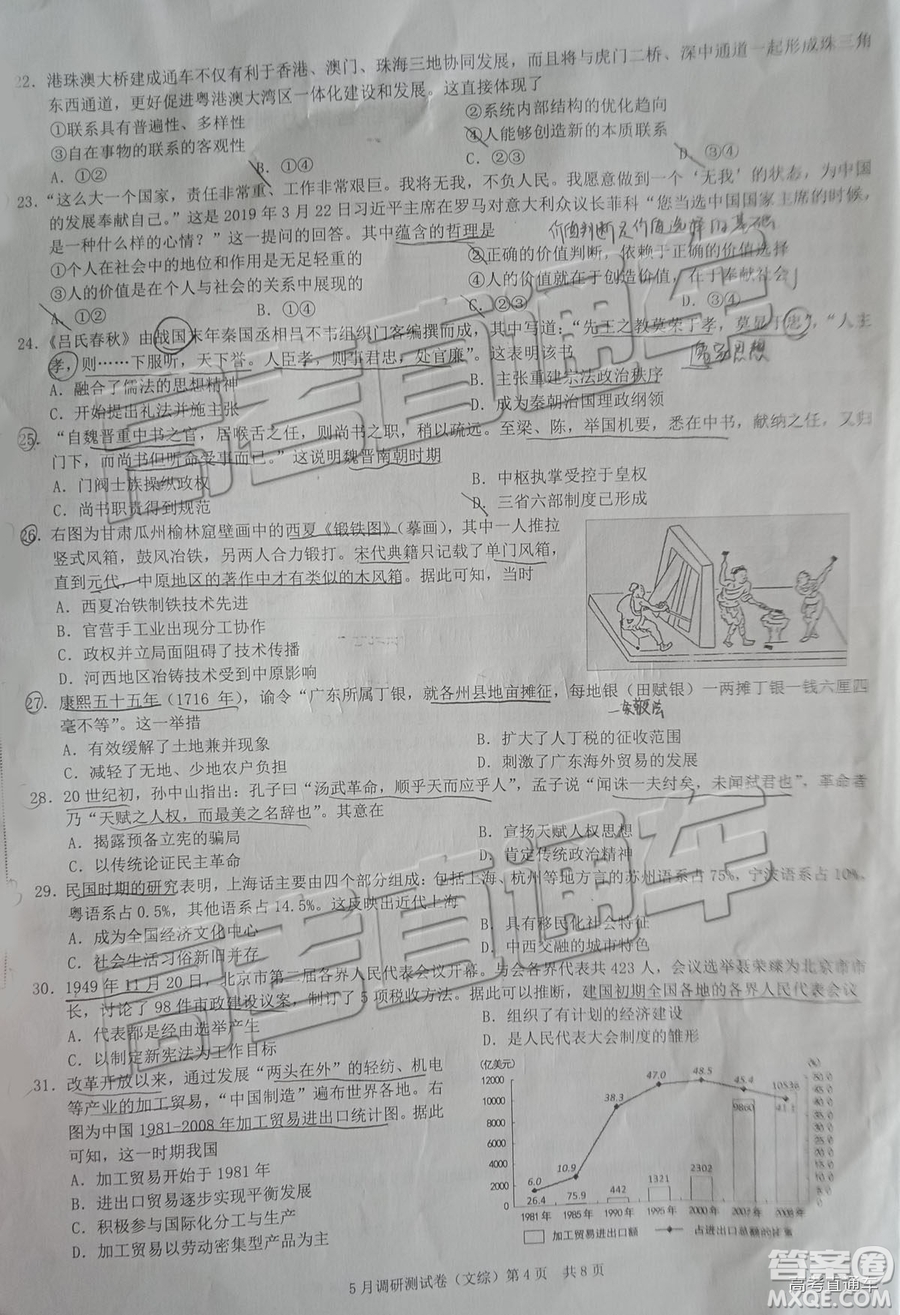 22. 港珠澳大桥建成通车不仅有利于香港、澳门、珠海三地协同发展，而且将与虎门二桥、深中通道一起形成珠三角
东西通道，更好促进粤港澳大湾区一体化建设和发展。这直接体现了
①联系具有普遍性、多样性 ②系统内部结构的优化趋向
③自在事物的联系的客观性 ④人能够创造新的本质联系
A. ①② B. ①④ C. ②③ D. ③④
23. “这么大一个国家，责任非常重、工作非常艰巨。我将无我，不负人民。我愿意做到一个‘无我’的状态，为中国
的发展奉献自己。”这是 2019 年 3 月 22 日习近平主席在罗马对意大利众议长菲科“您当选中国国家主席的时候，
是一种什么样的心情？”这一提问的回答。其中蕴含的哲理是 价值判断是价值选择的基础
①个人在社会中的地位和作用是无足轻重的 ②正确的价值判断，依赖于正确的价值选择
③人的价值是在个人与社会的关系中展现的 ④人的价值就在于创造价值，在于奉献社会
A. ①② B. ①④ C. ②③ D. ③④
24. 《吕氏春秋》由战国末年秦国丞相吕不韦组织门客编撰而成，其中写道：“先王之教莫荣于孝，莫显于忠”，“人主
孝，则……下服听，天下誉。人臣孝，则事君忠，处官廉”。这表明该书 儒家思想
A. 融合了儒法的思想精神 B. 主张重建宗法政治秩序
C. 开始提出礼法并施主张 D. 成为秦朝治国理政纲领
25. “自魏晋重中书之官，居喉舌之任，则尚书之职，稍以疏远。至梁、陈，举国机要，悉在中书，献纳之任，又归
门下，而尚书但听命受事而已。”这说明魏晋南朝时期
A. 门阀士族操纵政权 B. 中枢执掌受控于皇权
C. 尚书职责得到规范 D. 三省六部制度已形成
26. 右图为甘肃瓜州榆林窟壁画中的西夏《锻铁图》（摹画），其中一人推拉
竖式风箱，鼓风冶铁，另两人合力锻打。宋代典籍只记载了单门风箱，
直到元代，中原地区的著作中才有类似的木风箱。据此可知，当时
A. 西夏冶铁制铁技术先进
B. 官营手工业出现分工协作
C. 政权并立局面阻碍了技术传播
D. 河西地区冶铸技术受到中原影响
27. 康熙五十五年（1716 年），谕令“广东所属丁银，就各州县地亩摊征，每地银（田赋银）一两摊丁银一钱六厘四
毫不等”。这一举措 一条鞭法
A. 有效缓解了土地兼并现象 B. 扩大了人丁税的征收范围
C. 减轻了无地、少地农户负担 D. 刺激了广东海外贸易的发展
28. 20 世纪初，孙中山指出：孔子曰“汤武革命，顺乎天而应乎人”，孟子说“闻诛一夫纣矣，未闻弑君也”，革命者
乃“天赋之人权，而最美之名辞也”。其意在
A. 揭露预备立宪的骗局 B. 宣扬天赋人权思想
C. 以传统论证民主革命 D. 肯定传统政治精神
29. 民国时期的研究表明，上海话主要由四个部分组成：包括上海、杭州等地方言的苏州语系占 75%，宁波语系占 10%，
粤语系占 0.5%，其他语系占 14.5%。这反映出近代上海
A. 成为全国经济文化中心 B. 具有移民化社会特征
C. 社会生活习俗新旧并存 D. 中西交融的城市特色
30. 1949 年 11 月 20 日，北京市第二届各界人民代表会议开幕。与会各界代表共 423 人，会议选举聂荣臻为北京市市
长，讨论了 98 件市政建设议案，制订了 5 项税收方法。据此可以推断，建国初期全国各地的各界人民代表会议
A. 代表都是经由选举产生 B. 组织了有计划的经济建设
C. 以制定新宪法为工作目标 D. 是人民代表大会制度的雏形
31. 改革开放以来，通过发展“两头在外”的轻纺、机电
等产业的加工贸易，“中国制造”遍布世界各地。右
图为中国 1981-2008 年加工贸易进出口统计图。据此
可知，这一时期我国
A. 加工贸易开始于 1981 年
B. 进出口贸易逐步实现平衡发展
C. 积极参与国际化分工与生产
D. 加工贸易以劳动密集型产品为主
(亿美元) (%)
12000
10000
8000
6000
4000
2000
0
6.0 10.9 38.3 47.0 48.5 45.4 41.1
26.4 75.9 442 1321 2302 9860 10536
1981年 1985年 1990年 1995年 2000年 2007年 2008年
加工贸易进出口额 占进出口总额的比重
5 月调研测试卷（文综）第 4 页 共 8 页
高考直通车
高考直通车
答案圈
高考直通车
MXQE.COM